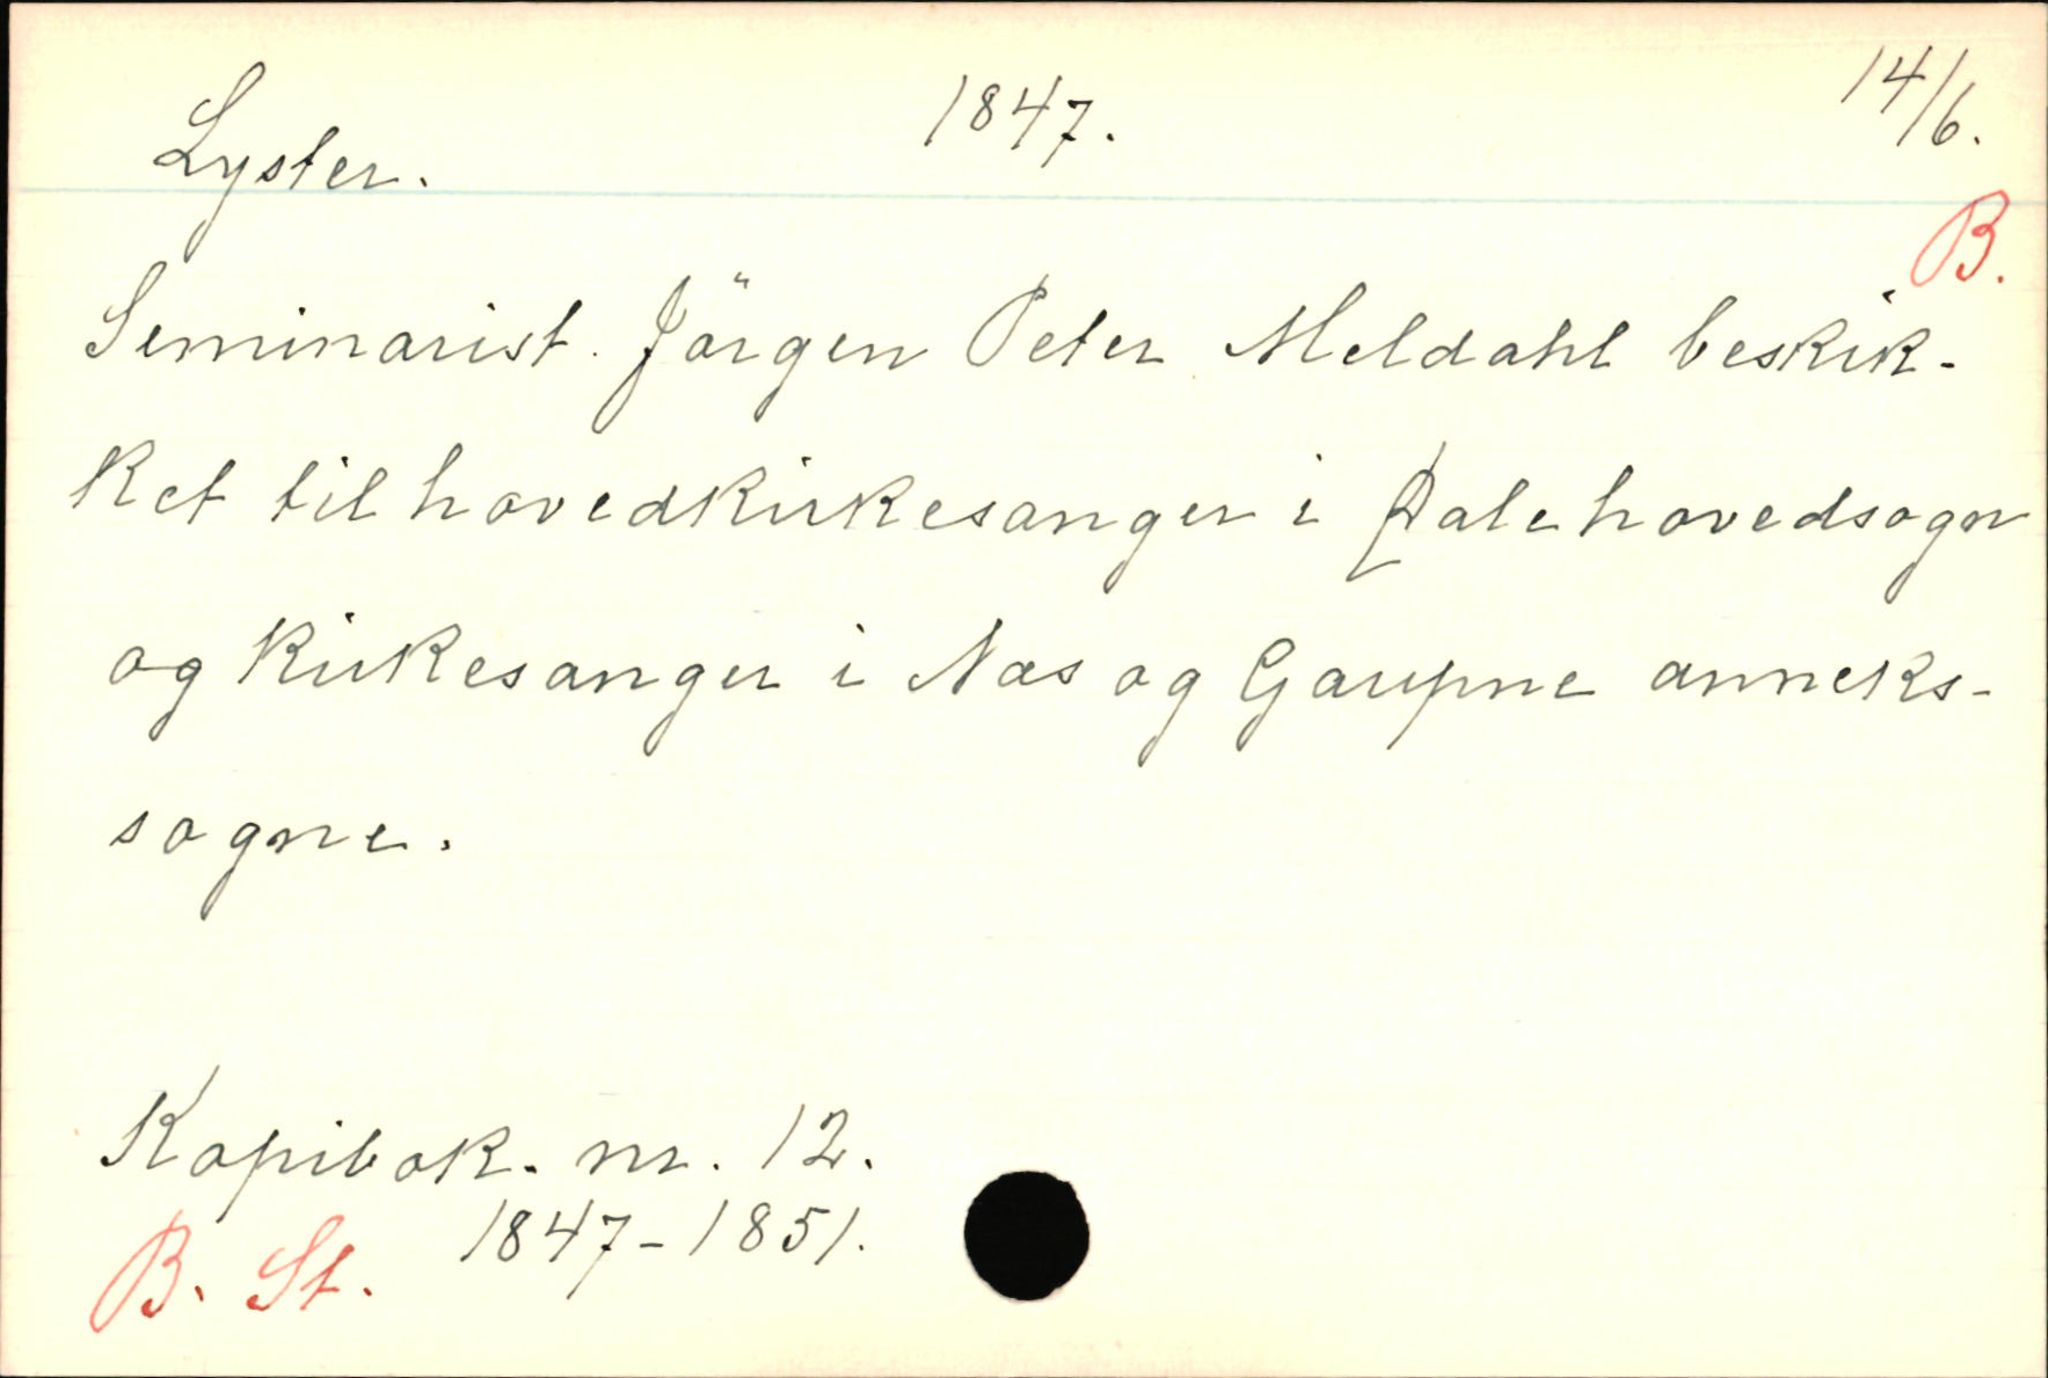 Lyster. 1847. 14/6.
B.
Seminarist. Jörgen Peter Meldahl beskik-
ket til hovedkirkesanger i Dale hovedsogn
og kirkesanger i Næs og Gaupne anneks-
sogne.
Kopibok. nr. 12.
1847-1851.
B. St.